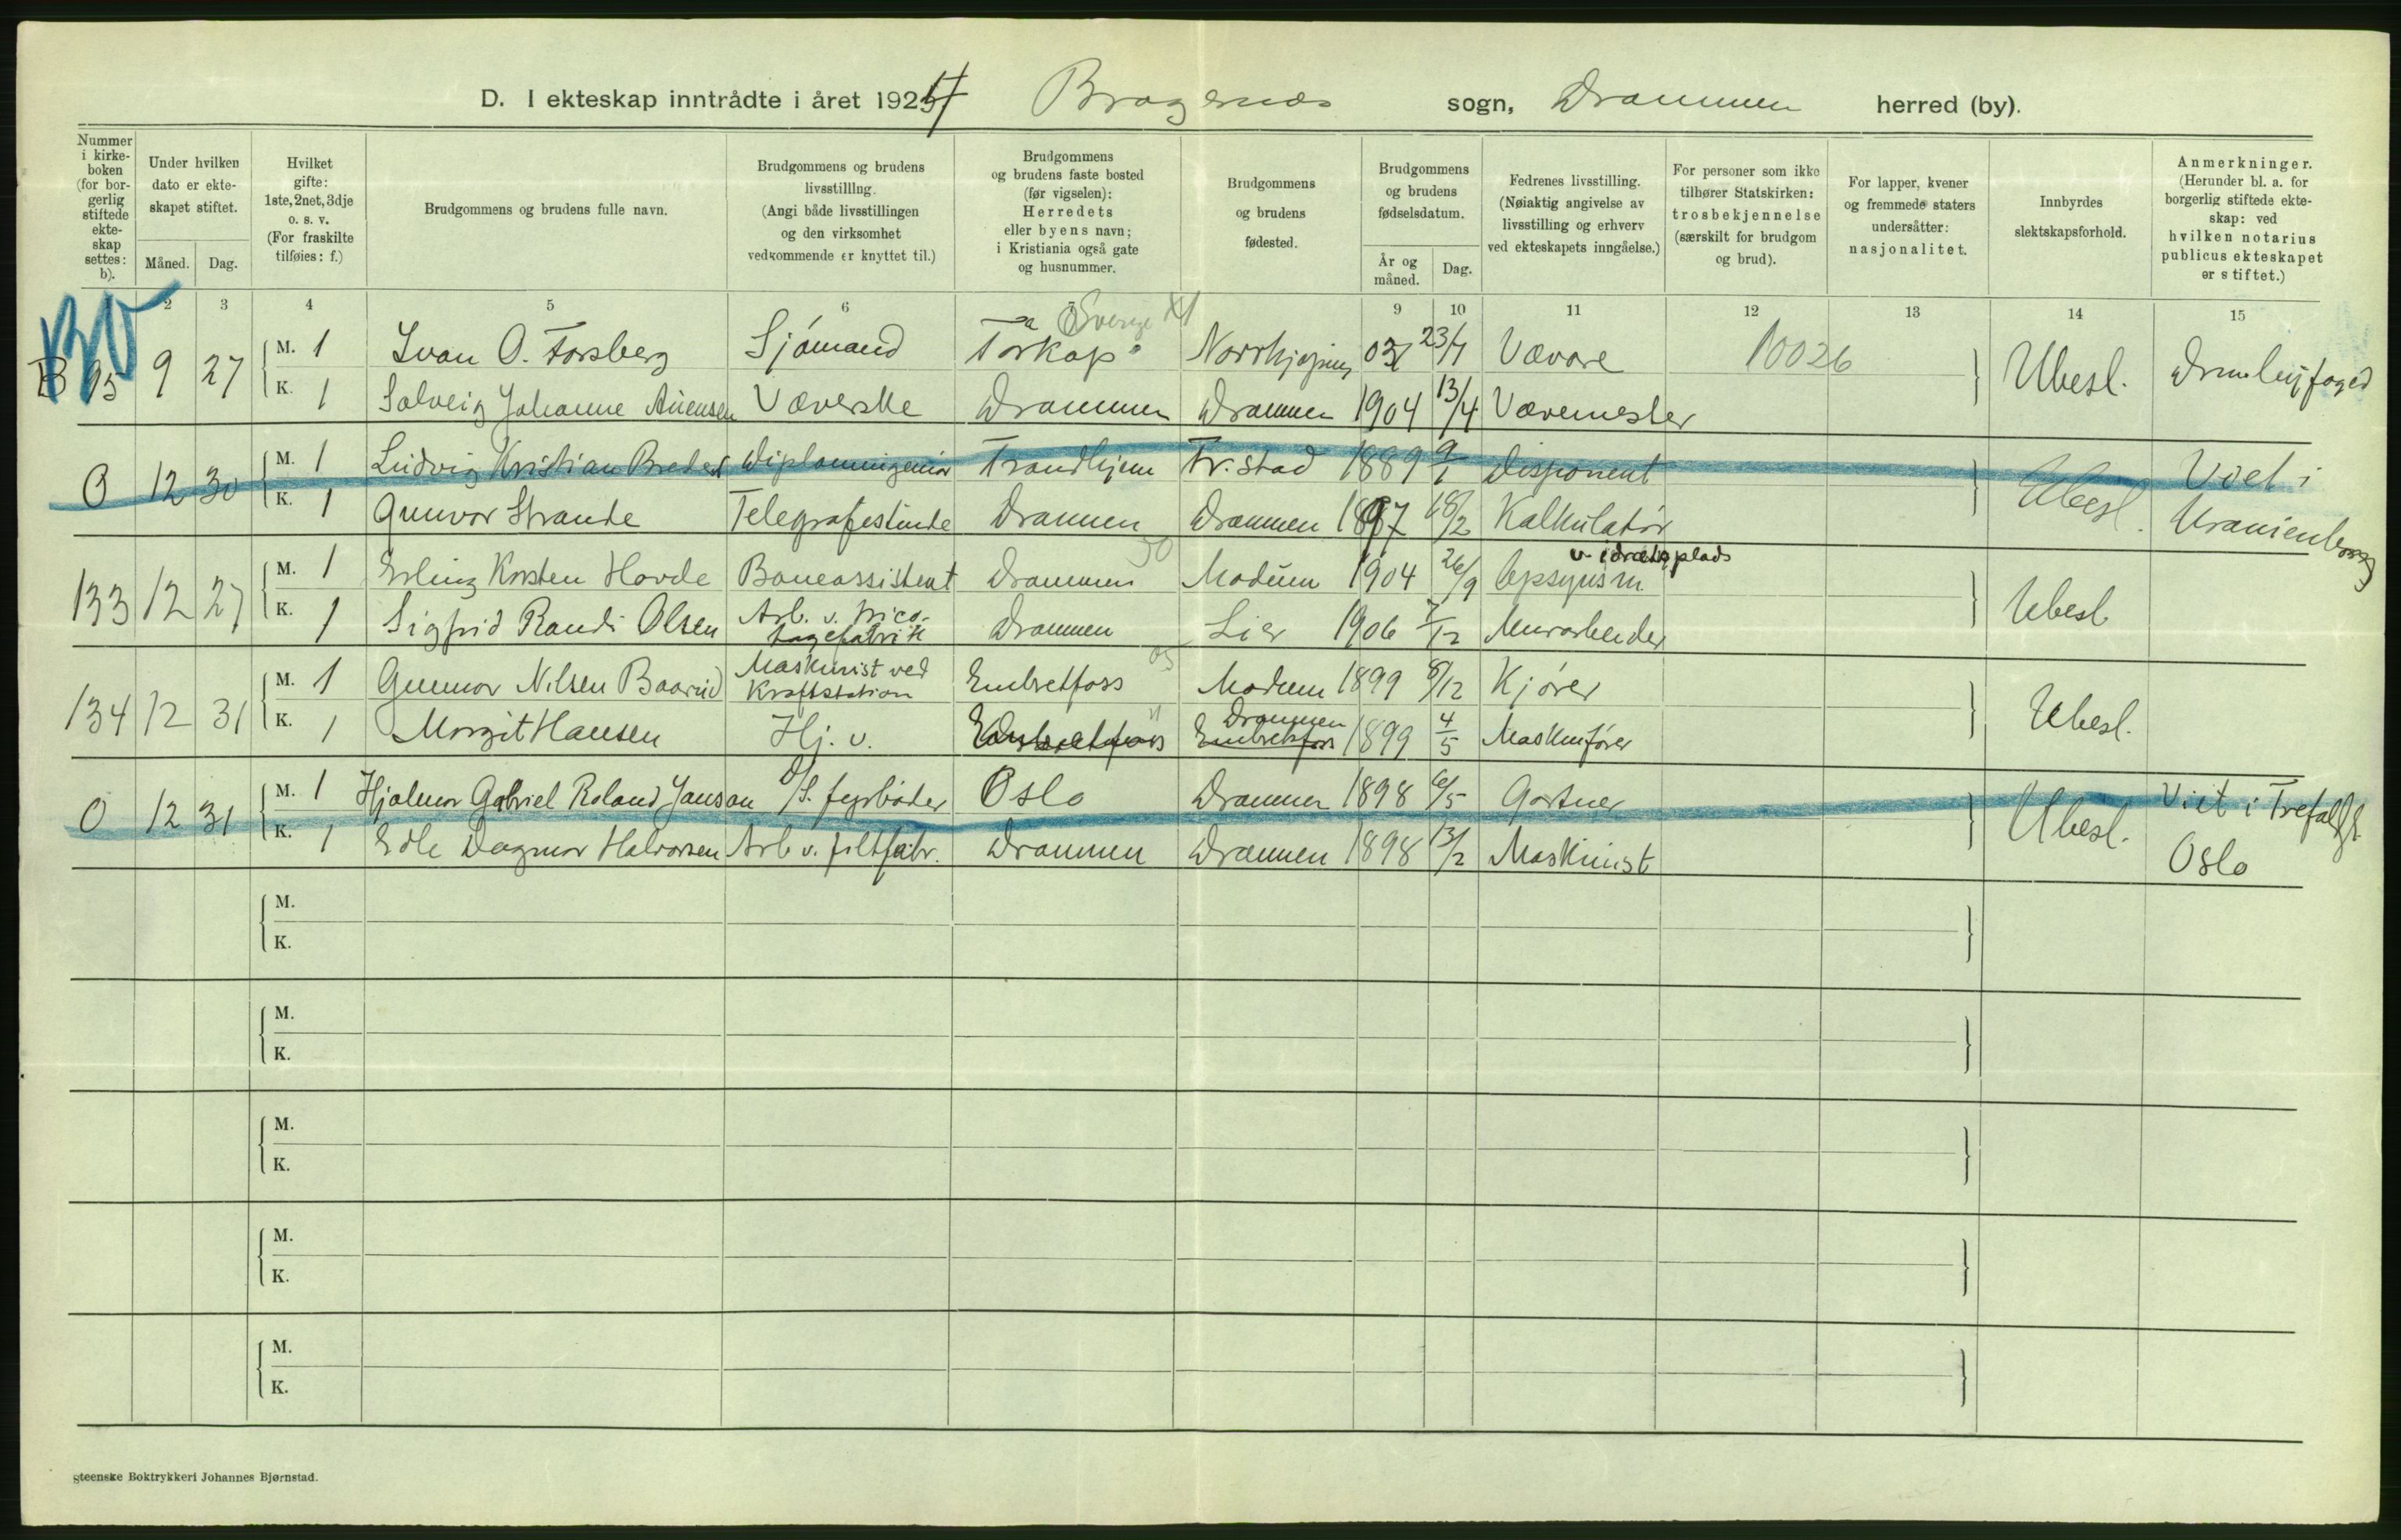 D. I ekteskap inntrådte i året 192 Bragernæs sogn, Drammen herred (by).
Nummer i kirke-boken (for bor-gerlig stiftede ekte-skap settes: b).
Under hvilken dato er ekte-skapet stiftet.
Måned. Dag.
Hvilket gifte: 1ste, 2net, 3dje o. s. v. (For fraskilte tilføies: f.)
Brudgommens og brudens fulle navn.
Brudgommens og brudens livsstilling. (Angi både livsstillingen og den virksomhet vedkommende er knyttet til.)
Brudgommens og brudens faste bosted (før vigselen): Herredets eller byens navn; i Kristiania også gate og husnummer.
Brudgommens og brudens fødested.
Brudgommens og brudens fødselsdatum.
År og måned. Dag.
Fedrenes livsstilling. (Nøiaktig angivelse av livsstilling og erhverv ved ekteskapets inngåelse.)
For personer som ikke tilhører Statskirken: trosbekjennelse (særskilt for brudgom og brud).
For lapper, kvener og fremmede staters undersåtter: nasjonalitet.
Innbyrdes slektskapsforhold.
Anmerkninger. (Herunder bl. a. for borgerlig stiftede ekte-skap: ved hvilken notarius publicus ekteskapet er stiftet.)
2 3 4 5 6 9 10 11 12 13 14 15
Sverige
B 95 9 27 M. 1 Ivan O. Forsberg Sjømand Norrkjøping 23/1 Vævare 10026 Ubesl.
K. 1 Solveig Johanne Væverske Drammen Drammen 1904 13/4 Vævemester
O 12 30 M. 1 Ludvig Kristian Diplomingeniør Trondhjem Fr.stad 1889 9/1 Disponent Ubesl. Viet i
K. 1 Gunvor Strande Telegrafistinde Drammen Drammen 1897 18/2 Kalkulatør Uranienborg
v. idrætsplads
133 12 27 M. 1 Erling Karsten Hovde Baneassistent Drammen Modum 1904 26/9 Opsynsm. Ubesl.
K. 1 Sigfrid Randi Olsen Arb. v. trico-tagefabrik Drammen Lier 1906 7/12 Murarbeider
134 12 31 M. 1 Gunnar Nilsen Baarud Maskinist ved Kraftstation Embretfoss Modum 1899 8/12 Kjører Ubesl.
K. 1 Margit Hansen Hj. v. Embretfoss Drammen 1899 4/5 Maskinfører
O 12 31 M. 1 Hjalmar Gabriel Roland Jansson D/S. fyrbøder Oslo Drammen 1898 6/5 Gartner Ubesl. Viet i Trefoldgh.
K. 1 Edle Dagmar Halvorsen Arb v. filtfabr. Drammen Drammen 1898 13/2 Maskinist Oslo
M.
K.
M.
K.
M.
K.
M.
K.
M.
K.
Steenske Boktrykkeri Johannes Bjørnstad.